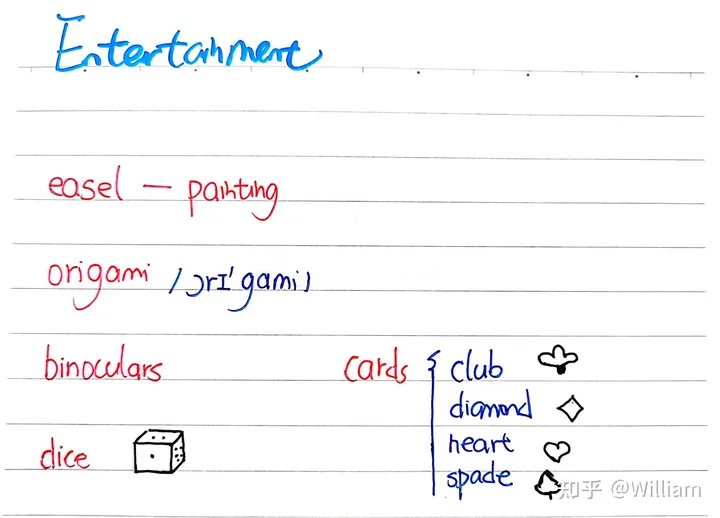 Entertainment
easel — painting
origami /ɔrɪ'gami/
binoculars
cards { club
diamond
heart
spade
dice
知乎 @William